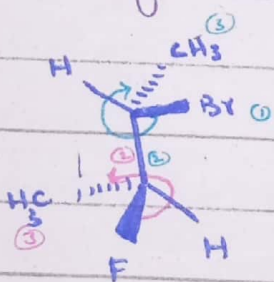 ③
CH3
H
Br ①
② ②
H3C
③
F
H